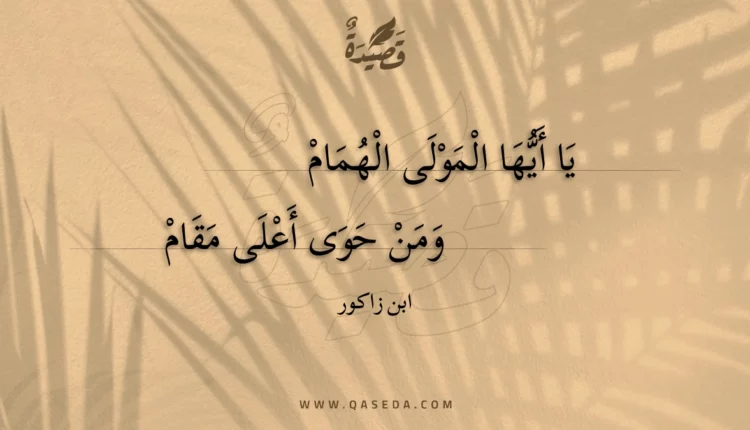 قَصِيْدَةٌ
يَا أَيُّهَا الْمَوْلَى الْهُمَامْ
وَمَنْ حَوَى أَعْلَى مَقَامْ
ابن زاكور
WWW.QASEDA.COM